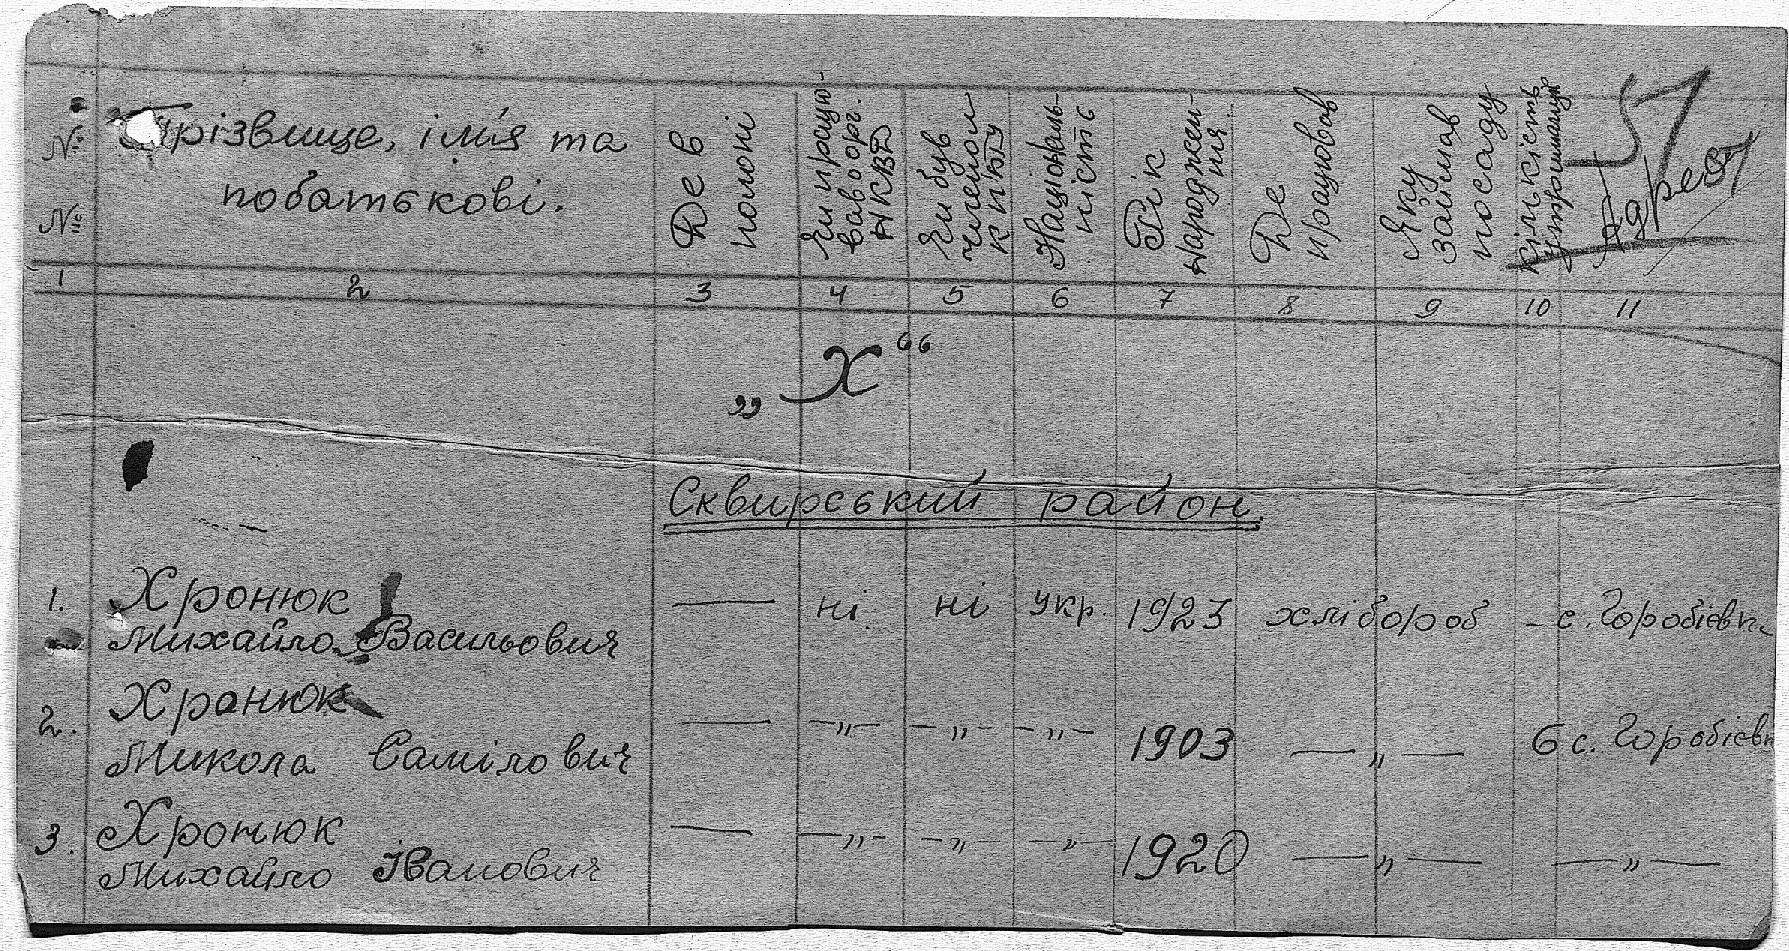 №№ Прізвище, ім'я та побатькові. Де в полоні Чи працював в орг. НКВД Чи був членом КП/б/У Національність Рік народження Де працював Яку займав посаду Кількість утриманців Адреса
57
1 2 3 4 5 6 7 8 9 10 11
„Х“
Сквирський район.
1. Хронюк Михайло Васильович — ні. ні укр. 1923 хлібороб - с. Горобієвк
2. Хронюк Микола Самілович — —„— —„— —„— 1903 —„— 6 с. Горобієв
3. Хронюк Михайло Іванович — —„— —„— —„— 1920 —„— —„—